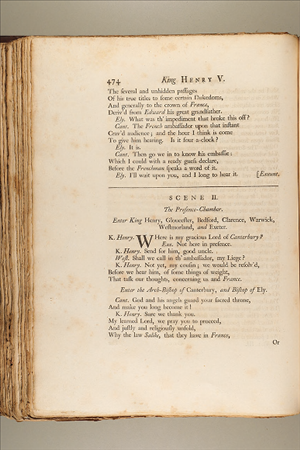 474 King HENRY V.
The several and unhidden passages
Of his true titles to some certain Dukedoms,
And generally to the crown of France,
Deriv'd from Edward his great grandfather.
Ely. What was th' impediment that broke this off?
Cant. The French ambassador upon that instant
Crav'd audience; and the hour I think is come
To give him hearing. Is it four a-clock?
Ely. It is.
Cant. Then go we in to know his embassie:
Which I could with a ready guess declare,
Before the Frenchman speaks a word of it.
Ely. I'll wait upon you, and I long to hear it. [Exeunt.
SCENE II.
The Presence-Chamber.
Enter King Henry, Gloucester, Bedford, Clarence, Warwick,
Westmorland, and Exeter.
K. Henry. WHere is my gracious Lord of Canterbury?
Exe. Not here in presence.
K. Henry. Send for him, good uncle.
West. Shall we call in th' ambassador, my Liege?
K. Henry. Not yet, my cousin; we would be resolv'd,
Before we hear him, of some things of weight,
That task our thoughts, concerning us and France.
Enter the Arch-Bishop of Canterbury, and Bishop of Ely.
Cant. God and his angels guard your sacred throne,
And make you long become it!
K. Henry. Sure we thank you.
My learned Lord, we pray you to proceed,
And justly and religiously unfold,
Why the law Salike, that they have in France,
Or